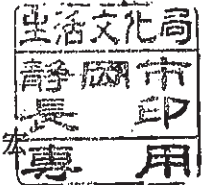 生活文化局
靜岡市
長印
專用